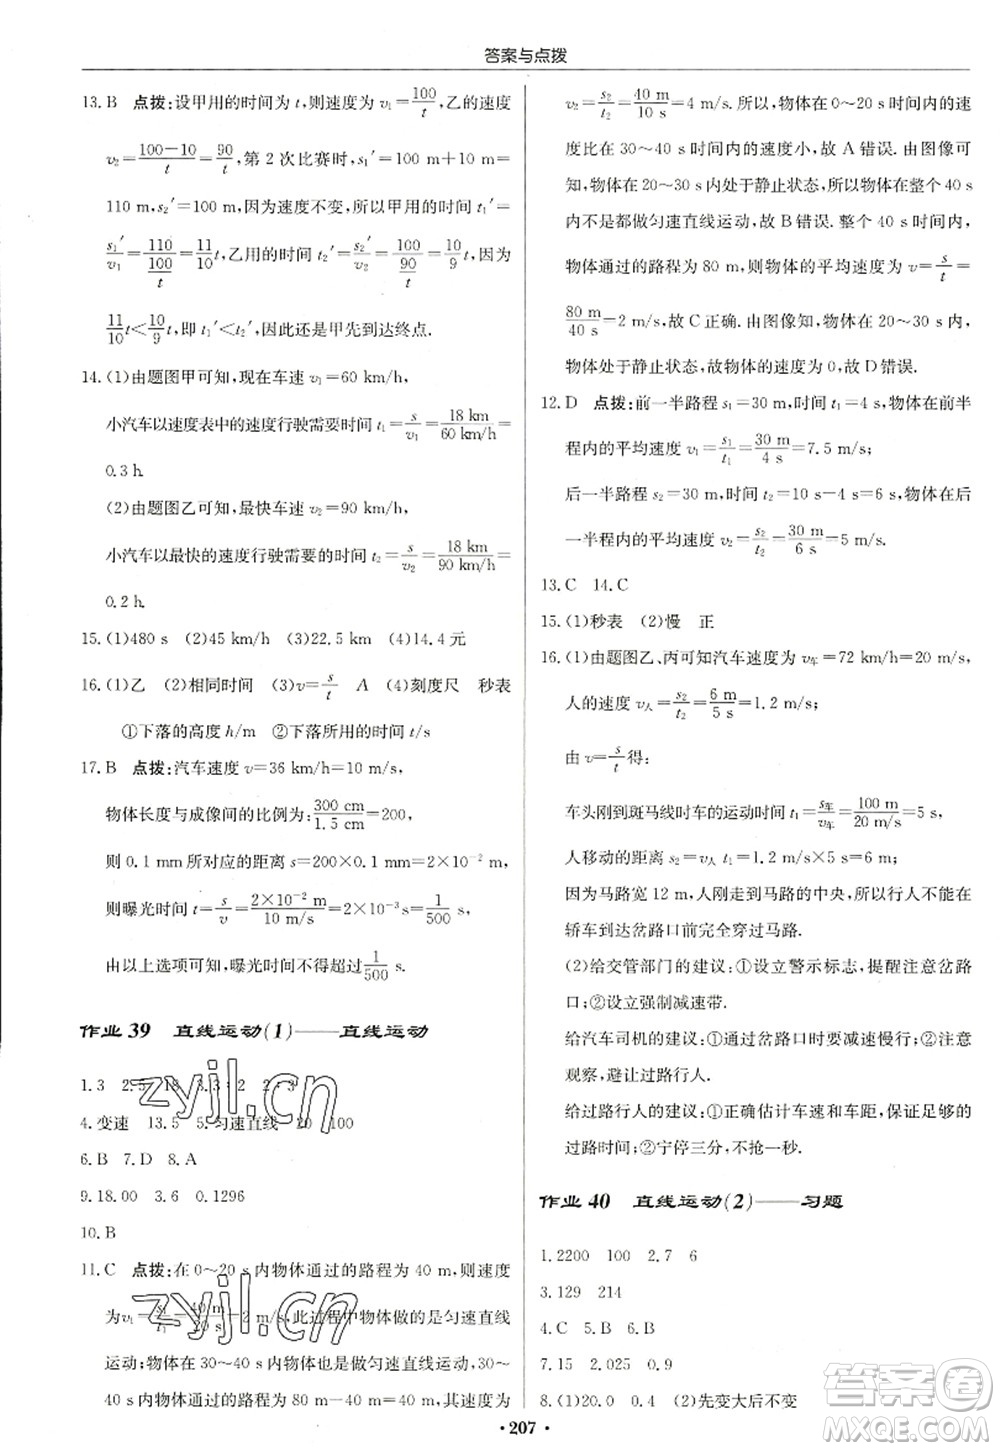 答案与点拨
13.B 点拨:设甲用的时间为 t,则速度为 v₁=100/t,乙的速度
v₂=(100-10)/t=90/t,第 2 次比赛时,s₁′=100 m+10 m=
110 m,s₂′=100 m,因为速度不变,所以甲用的时间 t₁′=
s₁′/v₁=110/(100/t)=11/10 t,乙用的时间 t₂′=s₂′/v₂=100/(90/t)=10/9 t,因为
11/10 t<10/9 t,即 t₁′<t₂′,因此还是甲先到达终点.
14.(1)由题图甲可知,现在车速 v₁=60 km/h,
小汽车以速度表中的速度行驶需要的时间 t₁=s/v₁=18 km/60 km/h=
0.3 h.
(2)由题图乙可知,最快车速 v₂=90 km/h,
小汽车以最快的速度行驶需要的时间 t₂=s/v₂=18 km/90 km/h=
0.2 h.
15.(1)480 s (2)45 km/h (3)22.5 km (4)14.4 元
16.(1)乙 (2)相同时间 (3)v=s/t A (4)刻度尺 秒表
①下落的高度 h/m ②下落所用的时间 t/s
17.B 点拨:汽车速度 v=36 km/h=10 m/s,
物体长度与成像间的比例为:300 cm/1.5 cm=200,
则 0.1 mm 所对应的距离 s=200×10⁻⁴ m=2×10⁻² m,
则曝光时间 t=s/v=2×10⁻² m/10 m/s=2×10⁻³ s=1/500 s,
由以上选项可知,曝光时间不得超过1/500 s.
作业 39 直线运动(1)——直线运动
1.3 2.5 18 3.3∶2 2∶3
4.变速 13.5 5.匀速直线 20 100
6.B 7.D 8.A
9.18.00 3.6 0.1296
10.B
11.C 点拨:在 0～20 s 内物体通过的路程为 40 m,则速度
为v₁=s₁/t₁=40 m/20 s=2 m/s,此过程中物体做的是匀速直线
运动;物体在 30～40 s 内物体也是做匀速直线运动,在 30～
40 s 内物体通过的路程为 80 m-40 m=40 m,其速度为
v₂=s₂/t₂=40 m/10 s=4 m/s.所以,物体在 0～20 s 时间内的速
度比在 30～40 s 时间内的速度小,故 A 错误.由图像可
知,物体在 20～30 s 内处于静止状态,所以物体在整个 40 s
内不是都做匀速直线运动,故 B 错误.整个 40 s 时间内,
物体通过的路程为 80 m,则物体的平均速度为 v=s/t=
80 m/40 s=2 m/s,故 C 正确.由图像知,物体在 20～30 s 内,
物体处于静止状态,故物体的速度为 0,故 D 错误.
12.D 点拨:前一半路程 s₁=30 m,时间 t₁=4 s,物体在前半
程内的平均速度 v₁=s₁/t₁=30 m/4 s=7.5 m/s;
后一半路程 s₂=30 m,时间 t₂=10 s-4 s=6 s,物体在后
一半程内的平均速度 v₂=s₂/t₂=30 m/6 s=5 m/s.
13.C 14.C
15.(1)秒表 (2)慢 正
16.(1)由题图乙、丙可知汽车速度为 v车=72 km/h=20 m/s,
人的速度 v人=s₂/t₂=6 m/5 s=1.2 m/s;
由 v=s/t得:
车头刚到斑马线时车的运动时间 t₁=s车/v车=100 m/20 m/s=5 s,
人移动的距离 s₂=v人 t₁=1.2 m/s×5 s=6 m,
因为马路宽 12 m,人刚走到马路的中央,所以行人不能在
轿车到达岔路口前完全穿过马路.
(2)给交管部门的建议:①设立警示标志,提醒注意岔路
口;②设立强制减速带.
给汽车司机的建议:①通过岔路口时要减速慢行;②注意
观察,避让过路行人.
给过路行人的建议:①正确估计车速和车距,保证足够的
过路时间;②宁停三分,不抢一秒.
作业 40 直线运动(2)——习题
1.2200 100 2.7 6
3.129 214
4.C 5.B 6.B
7.15 2.025 0.9
8.(1)20.0 0.4 (2)先变大后不变
· 207 ·
zyjl.cn
zyjl.cn
答案圈
MXQE.COM